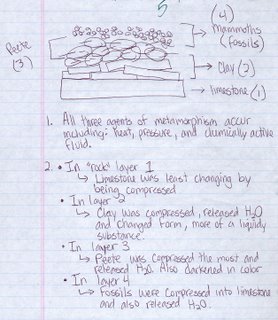 5
(4)
mammoths
(fossils)
Peete
(3)
Clay (2)
limestone (1)
1. All three agents of metamorphism accur
including: heat, pressure, and chemically active
fluid.
2. • In "rock" layer 1
↳ Limestone was least changing by
being compressed
• In layer 2
↳ Clay was compressed, released H2O
and changed form, more of a liquidy
substance.
• In layer 3
↳ Peete was compressed the most and
released H2O. Also darkened in color
• In layer 4
↳ Fossils were compressed into limestone
and also released H2O.